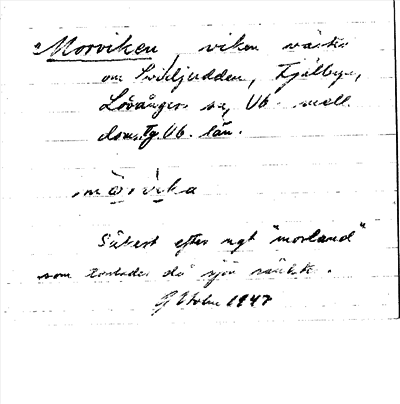 Morviken, viken väster
om Svältjudden, Fjälbyn,
Lövångers sn, Vb. mell.
doms. Vb. län.
mòrvìka
Säkert efter ngt "morland"
som torlades då sjön sänkts.
G Holm 1947